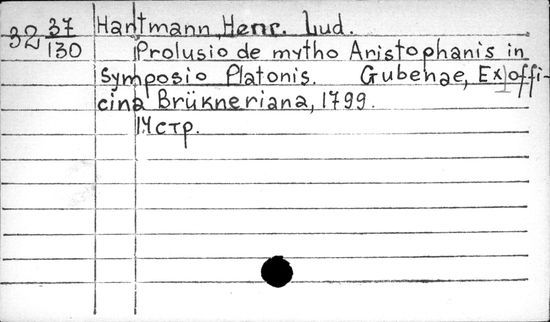 32 37/130
Hartmann, Henr. Lud.
Prolusio de mytho Aristophanis in
Symposio Platonis. Gubenae, Ex offi-
cina Brükneriana, 1799.
14 стр.